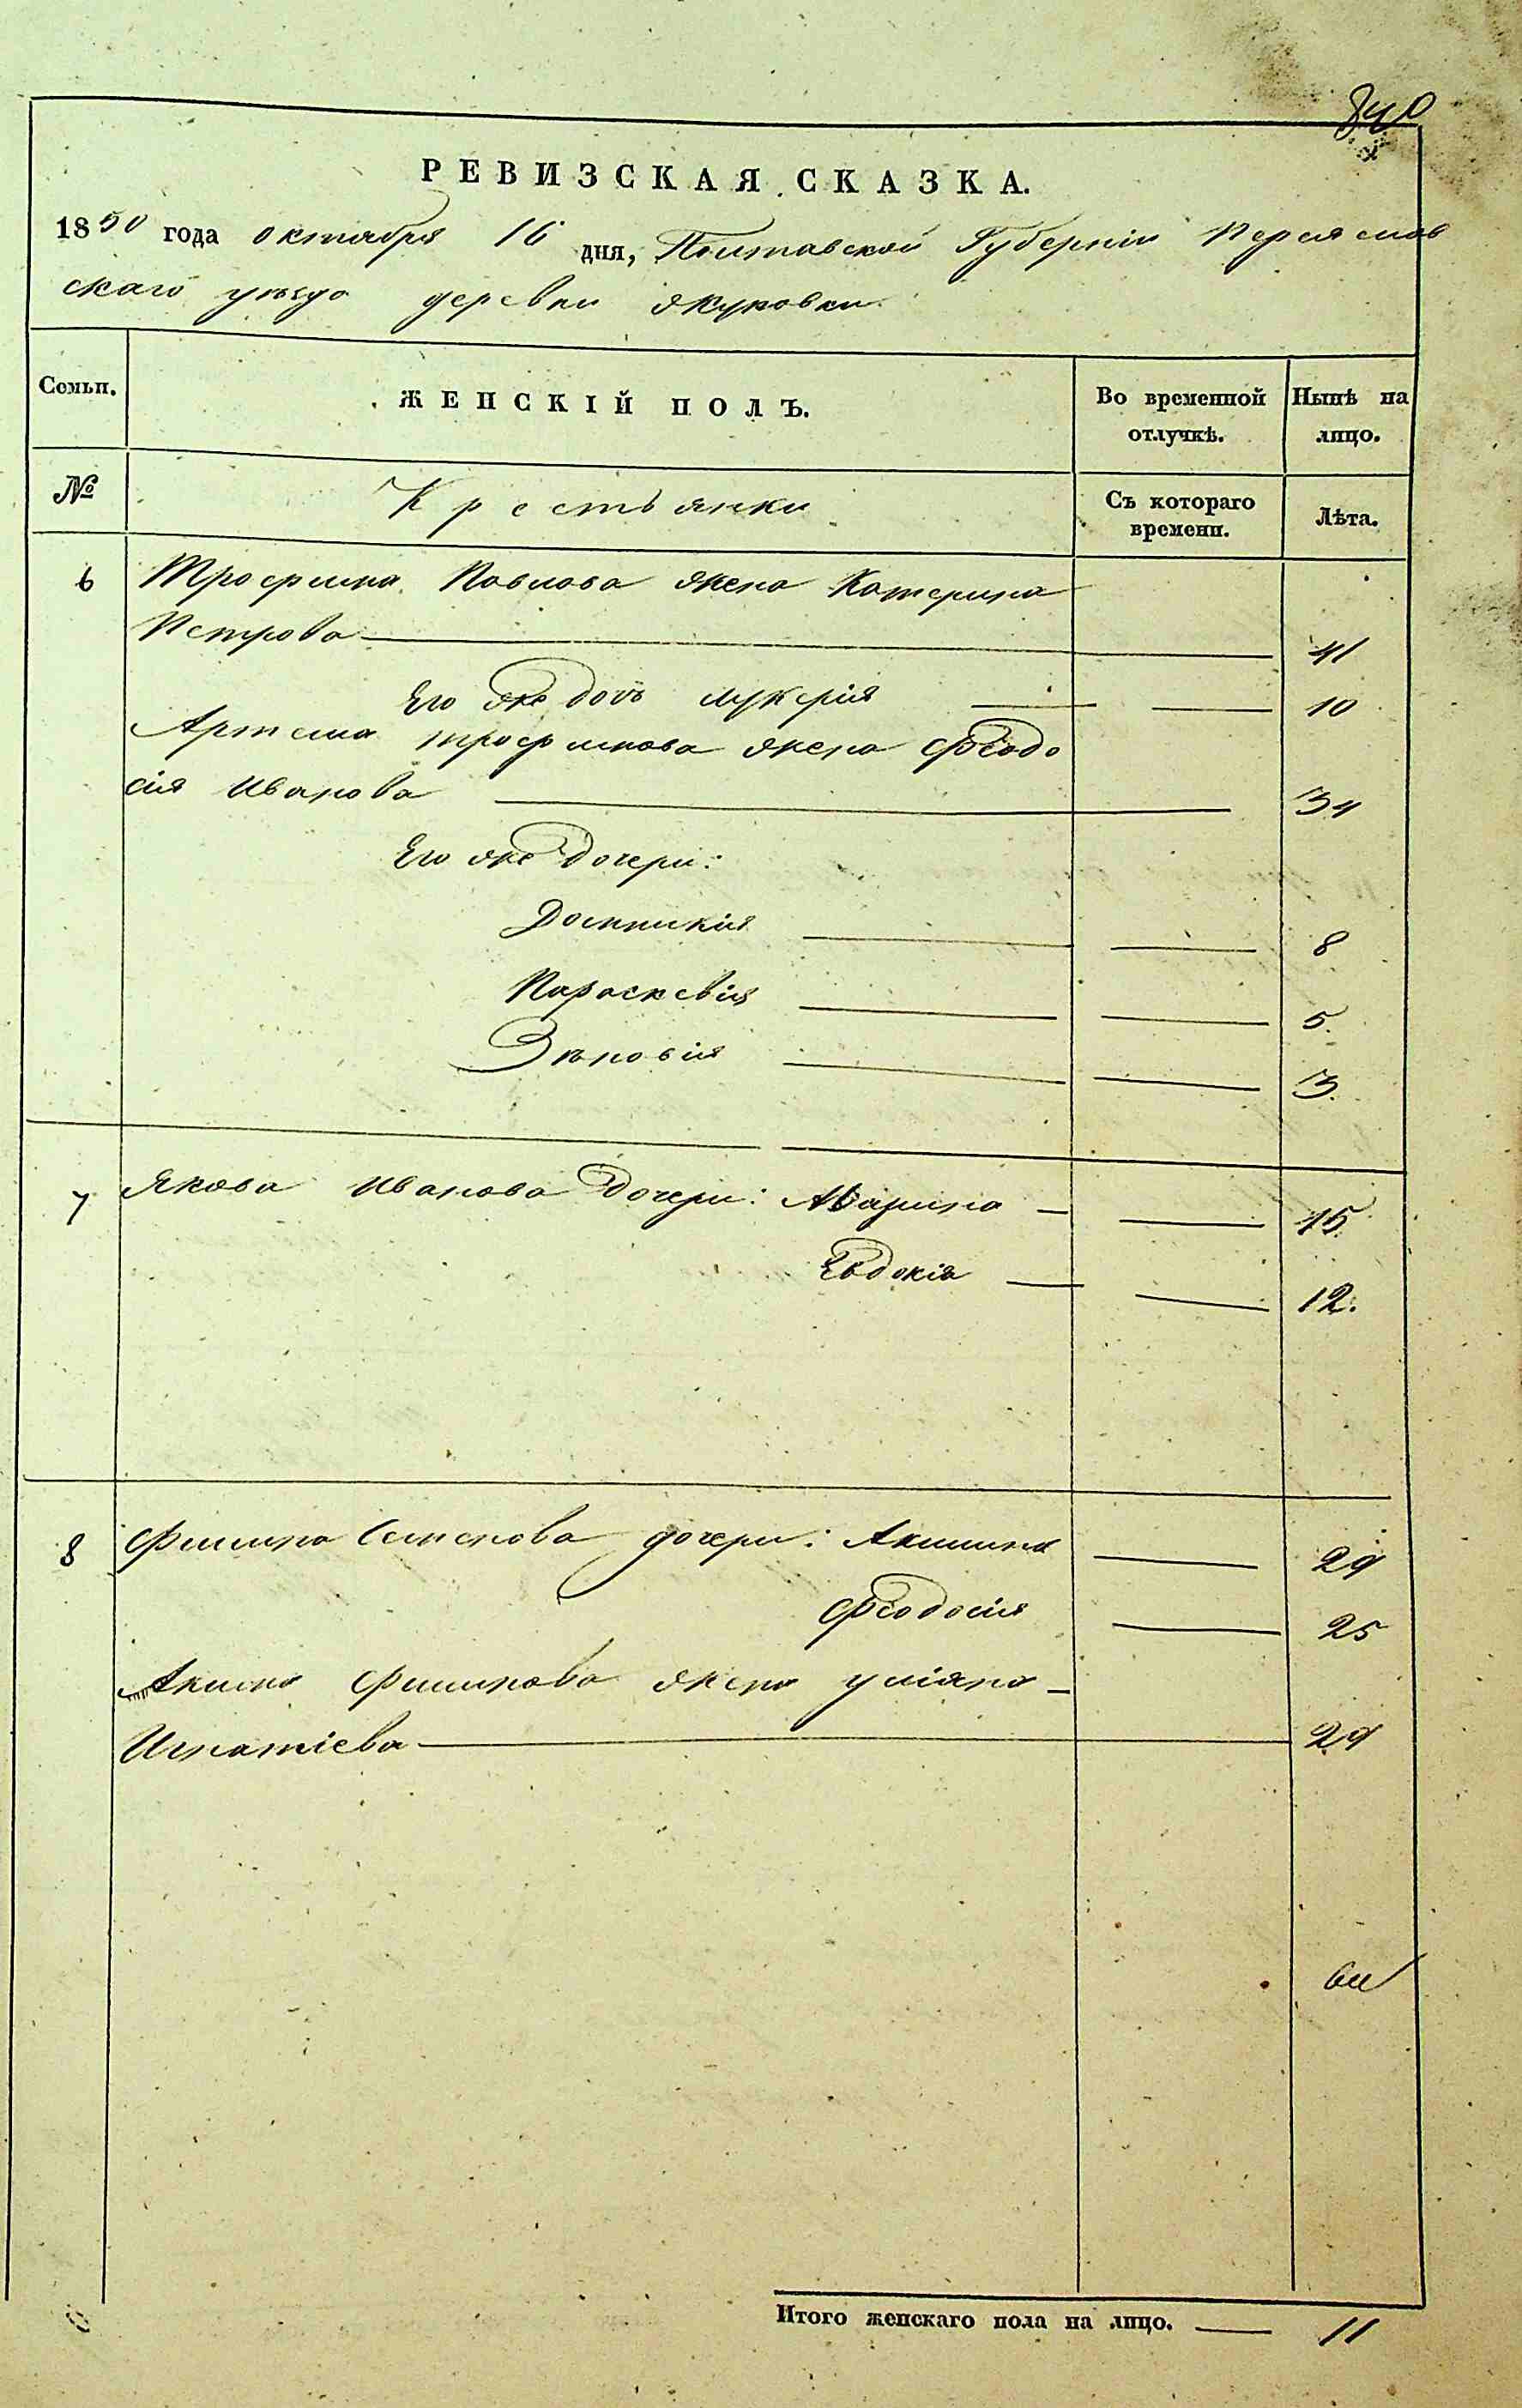 840
РЕВИЗСКАЯ СКАЗКА.
1850 года октября 16 дня, Полтавской Губерніи Переяслав
скаго уѣзда деревни Якуковки
Семьи.
ЖЕНСКІЙ ПОЛЪ.
Во временной отлучкѣ.
Нынѣ на лицо.
№
Крестьянки
Съ котораго времени.
Лѣта.
6 Трофима Павлова жена Катерина
Петрова 41
Его же дочь Лукерія 10
Артема Трофимова жена Феодо
сія Иванова 34
Его же дочери:
Домникія 8
Параскевія 5
Зѣновія 3
7 Якова Иванова дочери: Марина 15
Евдокія 12.
8 Филипа Семенова дочери: Акилина 29
Феодосія 25
Акима Филипова жена Уліяна
Игнатіева 29
Итого женскаго пола на лицо. 11